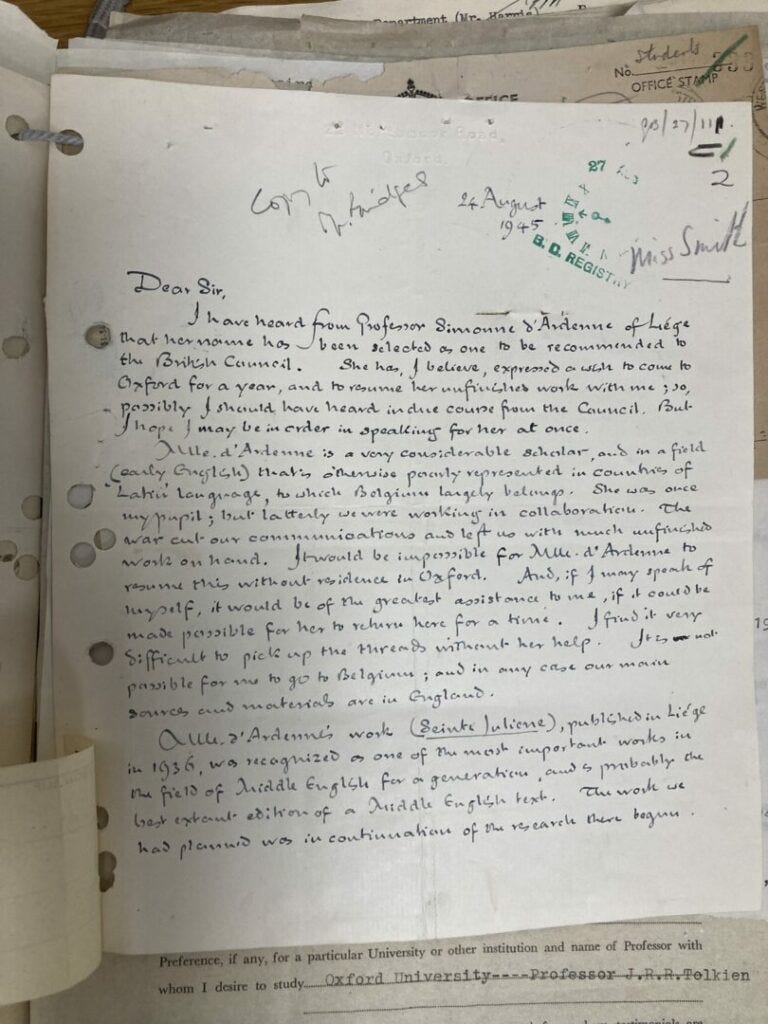 Department (Mr. Harris)
Students
No.
OFFICE STAMP
OFFICE
Oxford.
GB/27/111.
2
Copy to
Mr. Bridges
24 August
1945
27
B. C. REGISTRY
Miss Smith
Dear Sir,
I have heard from Professor Simonne d'Ardenne of Liége
that her name has been selected as one to be recommended to
the British Council. She has, I believe, expressed a wish to come to
Oxford for a year, and to resume her unfinished work with me; so,
possibly I should have heard in due course from the Council. But
I hope I may be in order in speaking for her at once.
Mlle. d'Ardenne is a very considerable scholar, and in a field
(early English) that is otherwise poorly represented in countries of
'Latin' language, to which Belgium largely belongs. She was once
my pupil; but latterly we were working in collaboration. The
war cut our communications and left us with much unfinished
work on hand. It would be impossible for Mlle. d'Ardenne to
resume this without residence in Oxford. And, if I may speak of
myself, it would be of the greatest assistance to me, if it could be
made possible for her to return here for a time. I find it very
difficult to pick up the threads without her help. It is not
possible for me to go to Belgium; and in any case our main
sources and materials are in England.
Mlle. d'Ardenne's work (Seinte Juliene), published in Liége
in 1936, was recognized as one of the most important works in
the field of Middle English for a generation, and is probably the
best extant edition of a Middle English text. The work we
had planned was in continuation of the research there begun.
Preference, if any, for a particular University or other institution and name of Professor with
whom I desire to study Oxford University----Professor J.R.R.Tolkien